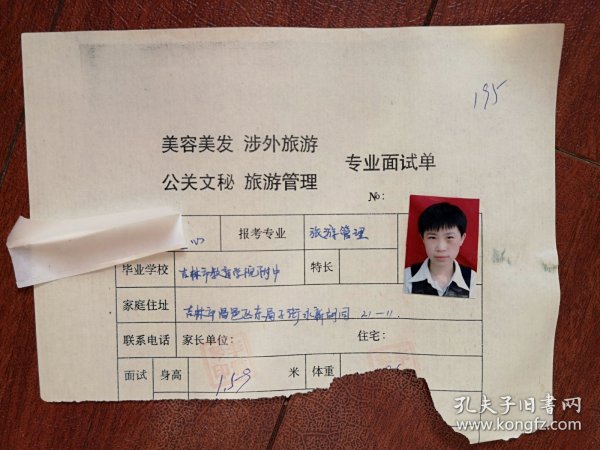 195
美容美发 涉外旅游
公关文秘 旅游管理
专业面试单
No:
报考专业 旅游管理
毕业学校 吉林市教育学院附中 特长
家庭住址 吉林市昌邑区东局子街永新胡同 21-11
联系电话 家长单位: 住宅:
面试 身高 1.59 米 体重
孔夫子旧书网
www.kongfz.com